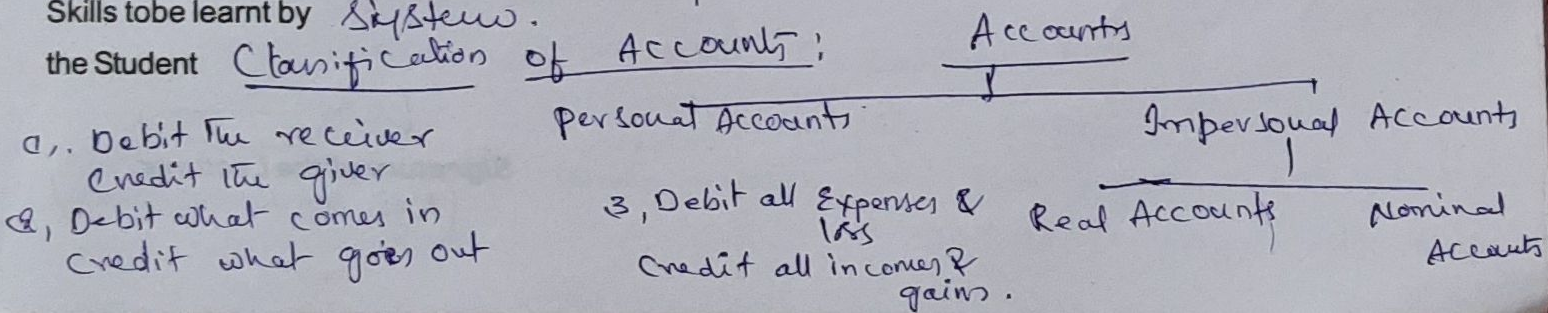 Skills tobe learnt by System.
the Student Classification of Accounts:
Accounts
Personal Accounts
Impersonal Accounts
Real Accounts
Nominal
Accounts
1,. Debit The receiver
Credit the giver
2, Debit what comes in
Credit what goes out
3, Debit all Expenses &
loss
Credit all incomes &
gains.